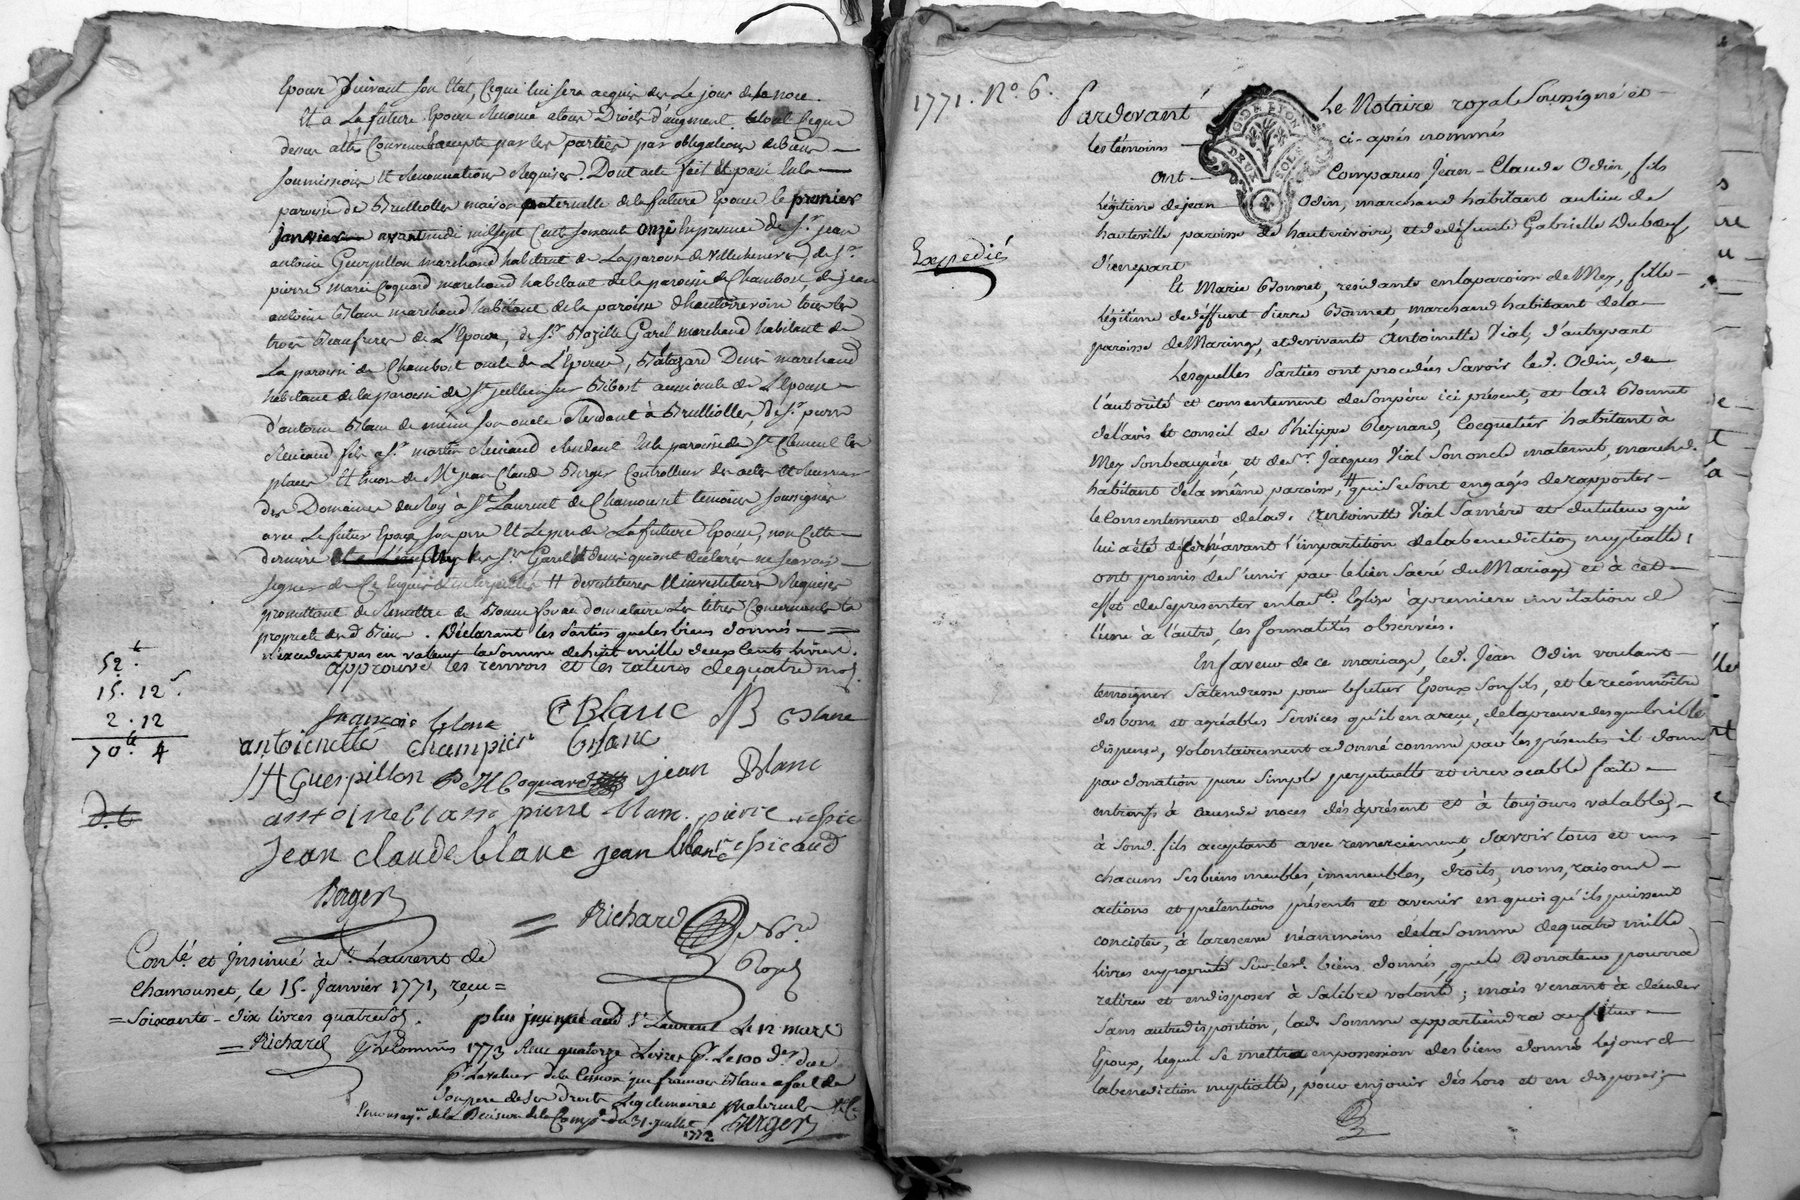 Epoux suivant son Etat, ce qui lui sera acquis dès Le jour de la noce.
Et a La future Epouse Renoncé a tous Droits d'augment. le tout Reçue
parties par obligations de Biens
soumissions Et Renonciations Requises. Dont acte fait Et passé en la
paroisse de Brulliolles maison paternelle de la future Epouse le premier
janvier avant midi mil sept Cent soixante onze En presence de Sr. jean
antoine Guerpillon marchand habitant de La paroisse de Villechenève, de Sr.
pierre Marie Coquard marchand habitant de la paroisse de Chambost, de jean
antoine Blanc marchand habitant de la paroisse d'hauterivoire tous les
trois Beaufreres de L'Epoux, de Sr. Bazille Garel marchand habitant de
La paroisse de Chambost oncle de L'Epoux, Batazard Denis marchand
habitant de la paroisse de St. jullien sur Bibost aussi oncle de L'Epouse
d'antoine Blanc de même son oncle Residant à Brulliolles, de Sr. pierre
fils a Sr. residant En la paroisse de St. Clement les
places Et Encore de Me. jean Claude Berger Controlleur des actes Et
des Domaines du Roy à St. Laurent de Chamousset temoins soussignés
avec Le futur Epoux son pere Et Le pere de La future Epouse, non Cette
derniere Ny les Srs. Garel Et Denis qui ont déclarés ne sçavoir
signer de Ce Enquis Et interpellés # devestitures Et investitures Requises
promettant de Remettre de Bonne foy au donataire Les titres Concernants la
propriété des d. Biens. Déclarant les Parties que les biens donnés
n'excedent pas en valeur la somme de huit mille deux cents livres.
approuvé les renvois et les ratures de quatre mots.
52.
15. 12s.
2. 12
70. 4
françois blanc CBlanc JB Blanc
antoienette champier Blanc
JA Guerpillon P M Coquard jean Blanc
antoine blanc pierre blanc. pierre
jean claude blanc jean blanc
Berger
Richard Nore.
Royal
Conlé. et Insinué à St. Laurent de
Chamousset, le 15. Janvier 1771, reçu =
= Soixante-dix livres quatre Sols.
= Richard Commis
plus insinué aud. St. Laurent Le 12 mars
1773 Reçu quatorze Livres pr. Le 100e. der.
pr. La valeur de la Cession que francois Blanc a fait de
son pere de ses droits Legitimaires Maternels
En consequ. de la Decision de la Compe. du 31. juillet
1772 Berger
1771. No. 6.
Expedié
Pardevant Le Notaire royal Soussigné et
les témoins ci-après nommés
Ont Comparus Jean-Claude Odin, fils
légitime de jean Odin, marchand habitant au lieu de
hauteville paroisse de hauterivoire, et de défunte Gabrielle Dubœuf,
d'une part
G. DE LYON
DEUX SOLS
Et Marie Bonnet, résidante en la paroisse de Meys, fille
légitime de déffunt Pierre Bonnet, marchand habitant de la
paroisse de Maringe, et de vivante Antoinette Vial, d'autre part
Lesquelles Parties ont procedées Savoir led. Odin, de
l'autorité et consentement de Son père ici présent, et lad. Bonnet
de l'avis et conseil de Philippe Reynard, Cocquetier habitant à
Meys son beaupère, et de Sr. Jacques Vial Son oncle maternel, marchd.
habitant de la même paroisse, # qui se sont engagés de rapporter
le Consentement de lad. Antoinette Vial Sa mère et du tuteur qui
lui a été déferé avant l'impartition de la benediction nuptialle;
ont promis de S'unir par le lien Sacré du Mariage et à cet
effet de Se presenter en la Ste. Eglise à premiere invitation de
l'une à l'autre, les formalités observées.
En faveur de ce mariage, led. Jean Odin voulant
temoigner Sa tendresse pour le futur Epoux Son fils, et le reconnoître
des bons et agréables Services qu'il en a reçu, de la preuve desquels il le
dispense, volontairement a donné comme par les présentes il donne
par donation pure Simple perpetuelle et irrevocable faite
entrevifs à cause de noces dès à présent et à toujours valable,
à Sond. fils acceptant avec remerciement, Savoir tous et uns
chacuns Ses biens meubles, immeubles, droits, noms, raisons
actions et prétentions présents et avenir en quoi qu'ils puissent
concister, à la reserve néanmoins de la Somme de quatre mille
livres en propriété Sur lesd. biens donnés que le Donateur pourra
retirer et en disposer à Sa libre volonté; mais venant à décéder
Sans autre disposition, lad. Somme appartiendra au futur
Epoux, lequel Se mettra en possession des biens donnés le jour de
la benediction nuptialle, pour en jouir dès lors et en disposer;